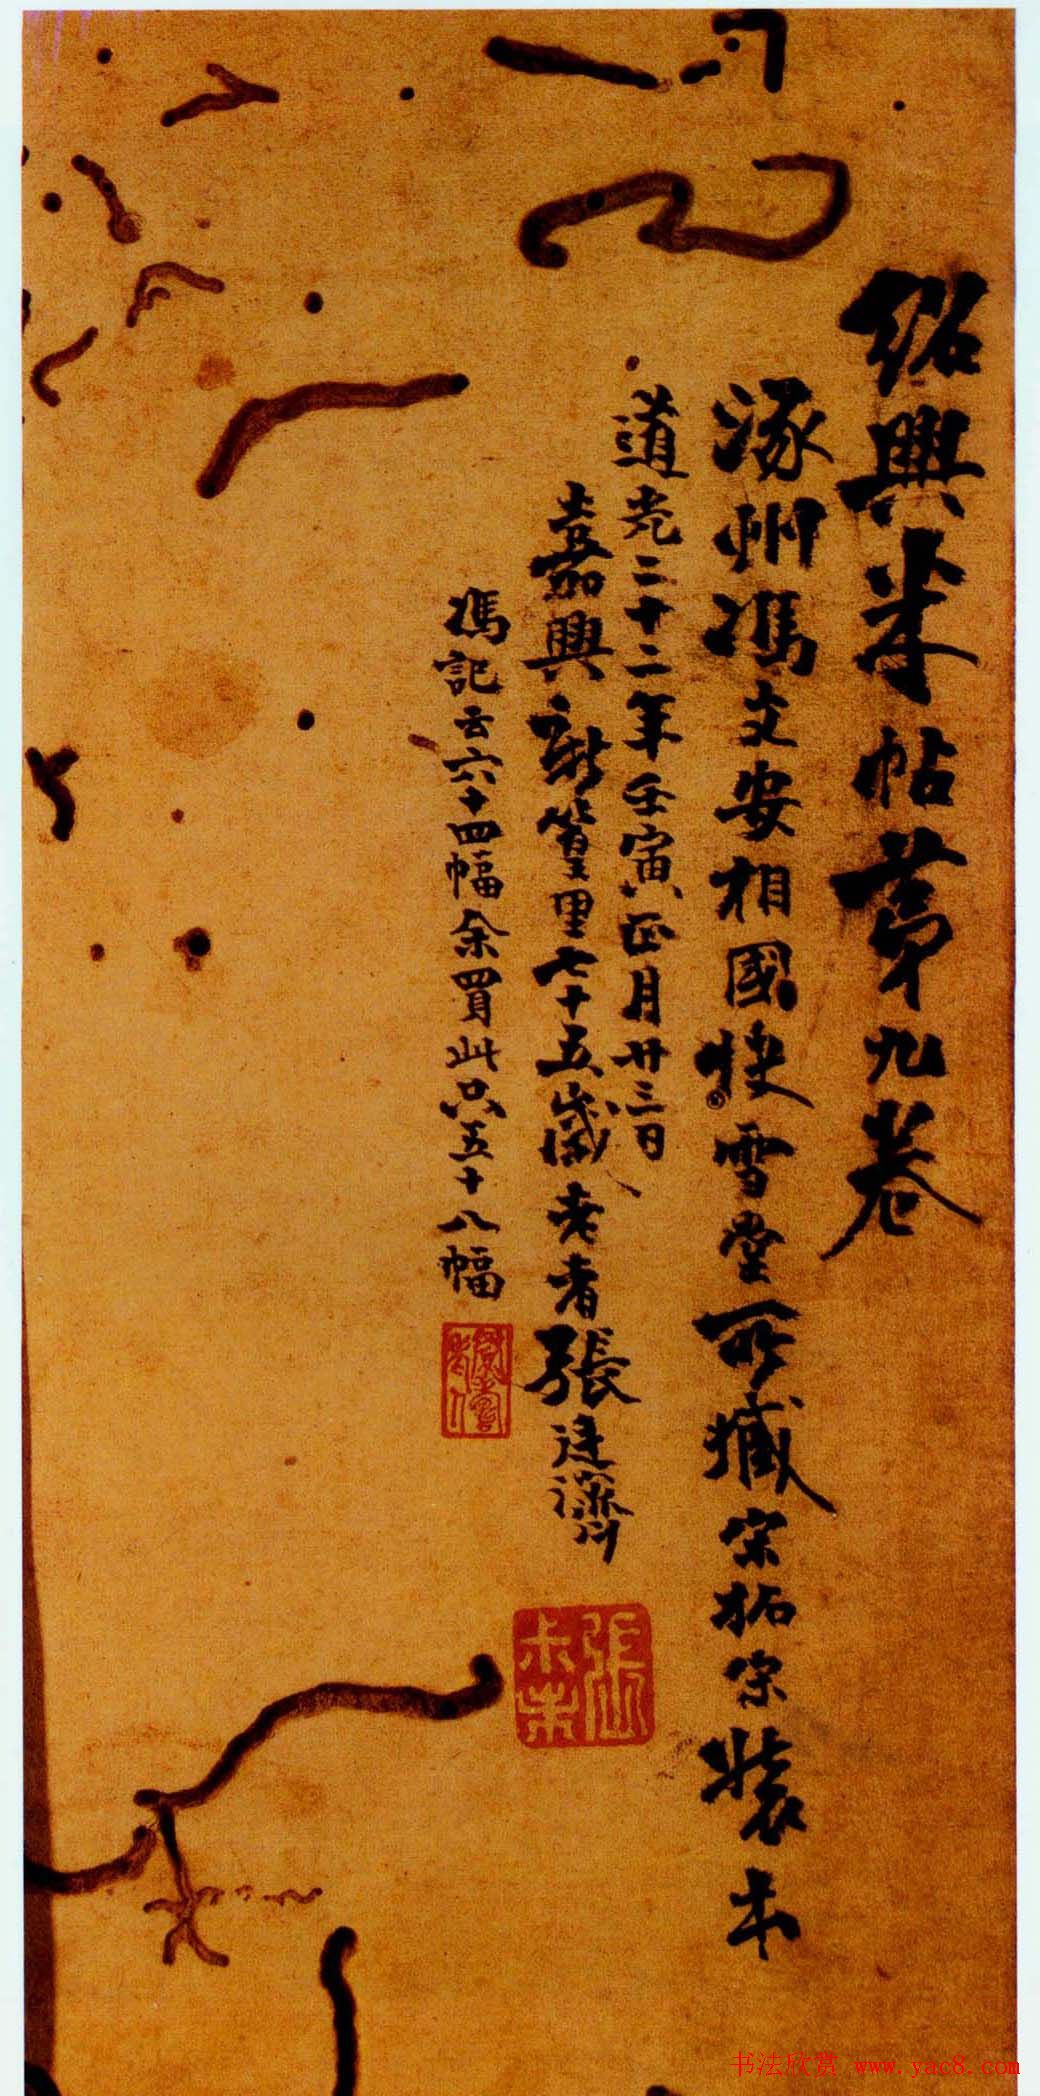 紹興米帖第九卷
涿州馮文安相國快雪堂所藏宋拓宋裝本
道光二十二年壬寅正月廿三日
嘉興新篁里七十五歲老者張廷濟
馮記云六十四幅余買此只五十八幅
张叔未
书法欣赏 www.yac8.com